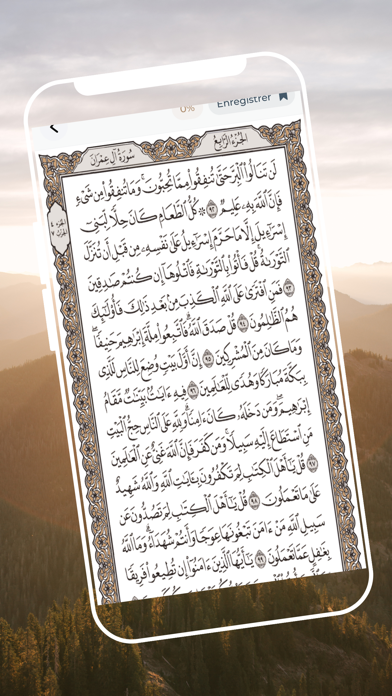 0%
Enregistrer
سُورَةُ آلِ عِمْرَانَ
الجُزْءُ الرَّابِعُ
لَن تَنَالُوا۟ ٱلْبِرَّ حَتَّىٰ تُنفِقُوا۟ مِمَّا تُحِبُّونَ ۚ وَمَا تُنفِقُوا۟ مِن شَىْءٍ
فَإِنَّ ٱللَّهَ بِهِۦ عَلِيمٌ ٩٢ ۞ كُلُّ ٱلطَّعَامِ كَانَ حِلًّا لِّبَنِىٓ
إِسْرَٰٓءِيلَ إِلَّا مَا حَرَّمَ إِسْرَٰٓءِيلُ عَلَىٰ نَفْسِهِۦ مِن قَبْلِ أَن تُنَزَّلَ
ٱلتَّوْرَىٰةُ ۗ قُلْ فَأْتُوا۟ بِٱلتَّوْرَىٰةِ فَٱتْلُوهَآ إِن كُنتُمْ صَٰدِقِينَ
٩٣ فَمَنِ ٱفْتَرَىٰ عَلَى ٱللَّهِ ٱلْكَذِبَ مِنۢ بَعْدِ ذَٰلِكَ فَأُو۟لَٰٓئِكَ
هُمُ ٱلظَّٰلِمُونَ ٩٤ قُلْ صَدَقَ ٱللَّهُ ۗ فَٱتَّبِعُوا۟ مِلَّةَ إِبْرَٰهِيمَ حَنِيفًا
وَمَا كَانَ مِنَ ٱلْمُشْرِكِينَ ٩٥ إِنَّ أَوَّلَ بَيْتٍ وُضِعَ لِلنَّاسِ لَلَّذِى
بِبَكَّةَ مُبَارَكًا وَهُدًى لِّلْعَٰلَمِينَ ٩٦ فِيهِ ءَايَٰتٌۢ بَيِّنَٰتٌ مَّقَامُ
إِبْرَٰهِيمَ ۖ وَمَن دَخَلَهُۥ كَانَ ءَامِنًا ۗ وَلِلَّهِ عَلَى ٱلنَّاسِ حِجُّ ٱلْبَيْتِ
مَنِ ٱسْتَطَاعَ إِلَيْهِ سَبِيلًا ۚ وَمَن كَفَرَ فَإِنَّ ٱللَّهَ غَنِىٌّ عَنِ ٱلْعَٰلَمِينَ
٩٧ قُلْ يَٰٓأَهْلَ ٱلْكِتَٰبِ لِمَ تَكْفُرُونَ بِـَٔايَٰتِ ٱللَّهِ وَٱللَّهُ شَهِيدٌ
عَلَىٰ مَا تَعْمَلُونَ ٩٨ قُلْ يَٰٓأَهْلَ ٱلْكِتَٰبِ لِمَ تَصُدُّونَ عَن
سَبِيلِ ٱللَّهِ مَنْ ءَامَنَ تَبْغُونَهَا عِوَجًا وَأَنتُمْ شُهَدَآءُ ۗ وَمَا ٱللَّهُ
بِغَٰفِلٍ عَمَّا تَعْمَلُونَ ٩٩ يَٰٓأَيُّهَا ٱلَّذِينَ ءَامَنُوٓا۟ إِن تُطِيعُوا۟ فَرِيقًا